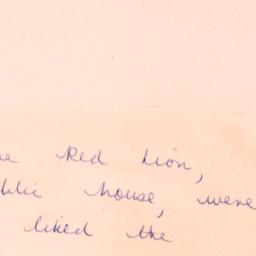 Red Lion,
House, were
liked the